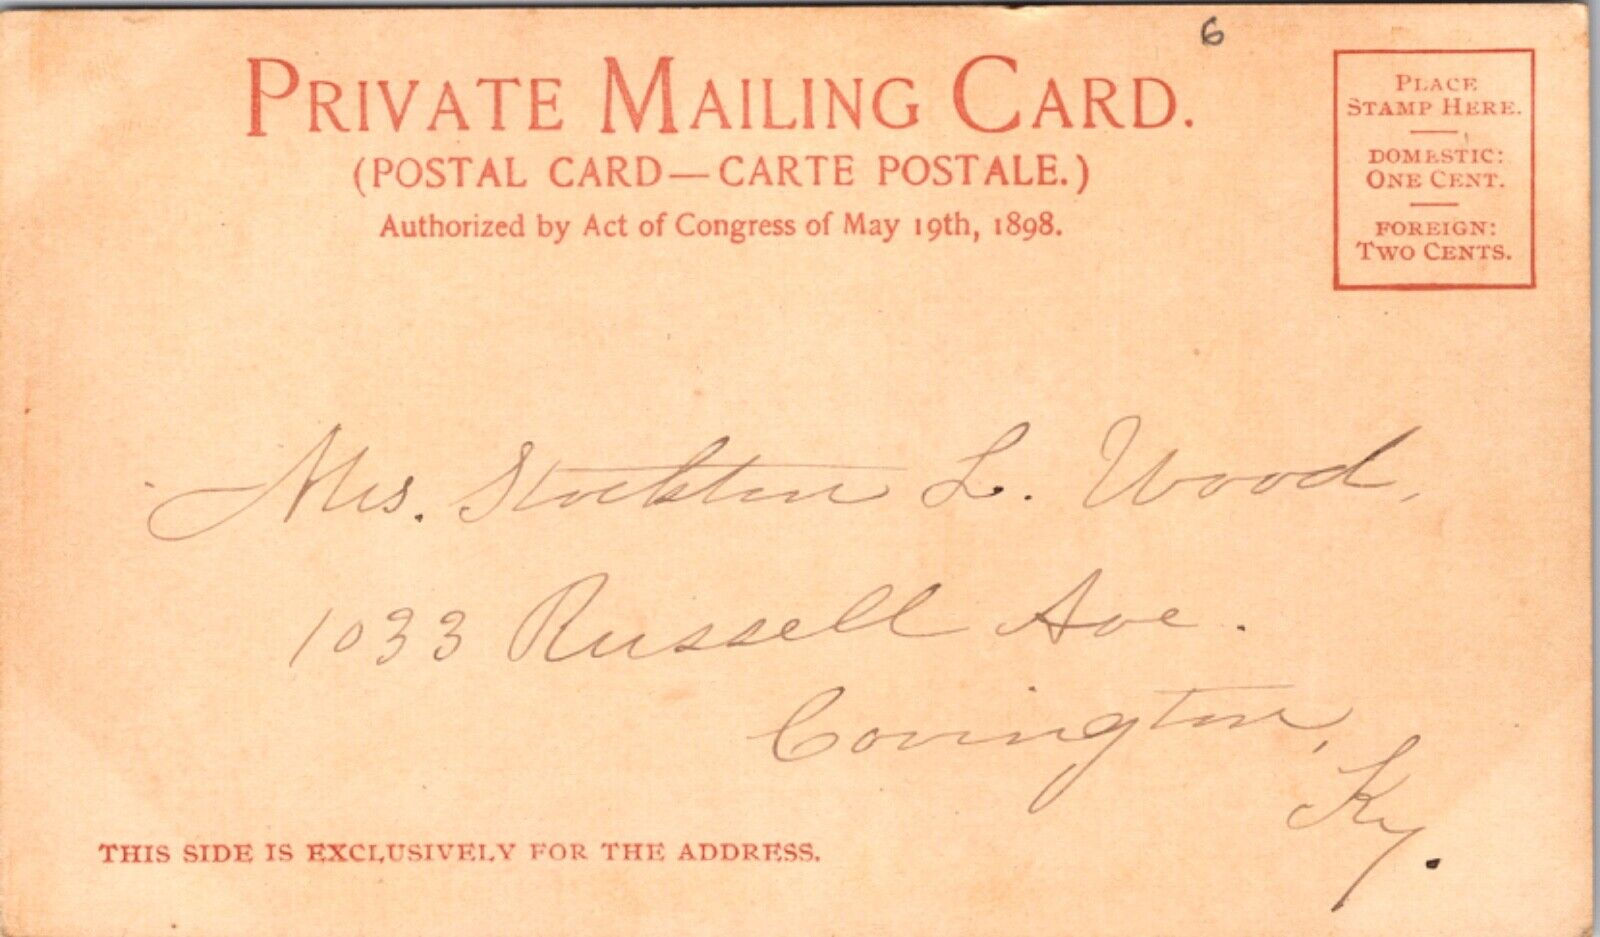 6
PRIVATE MAILING CARD.
(POSTAL CARD—CARTE POSTALE.)
Authorized by Act of Congress of May 19th, 1898.
PLACE
STAMP HERE.
DOMESTIC:
ONE CENT.
FOREIGN:
TWO CENTS.
Mrs. Stockton L. Wood,
1033 Russell Ave.
Covington,
Ky.
THIS SIDE IS EXCLUSIVELY FOR THE ADDRESS.